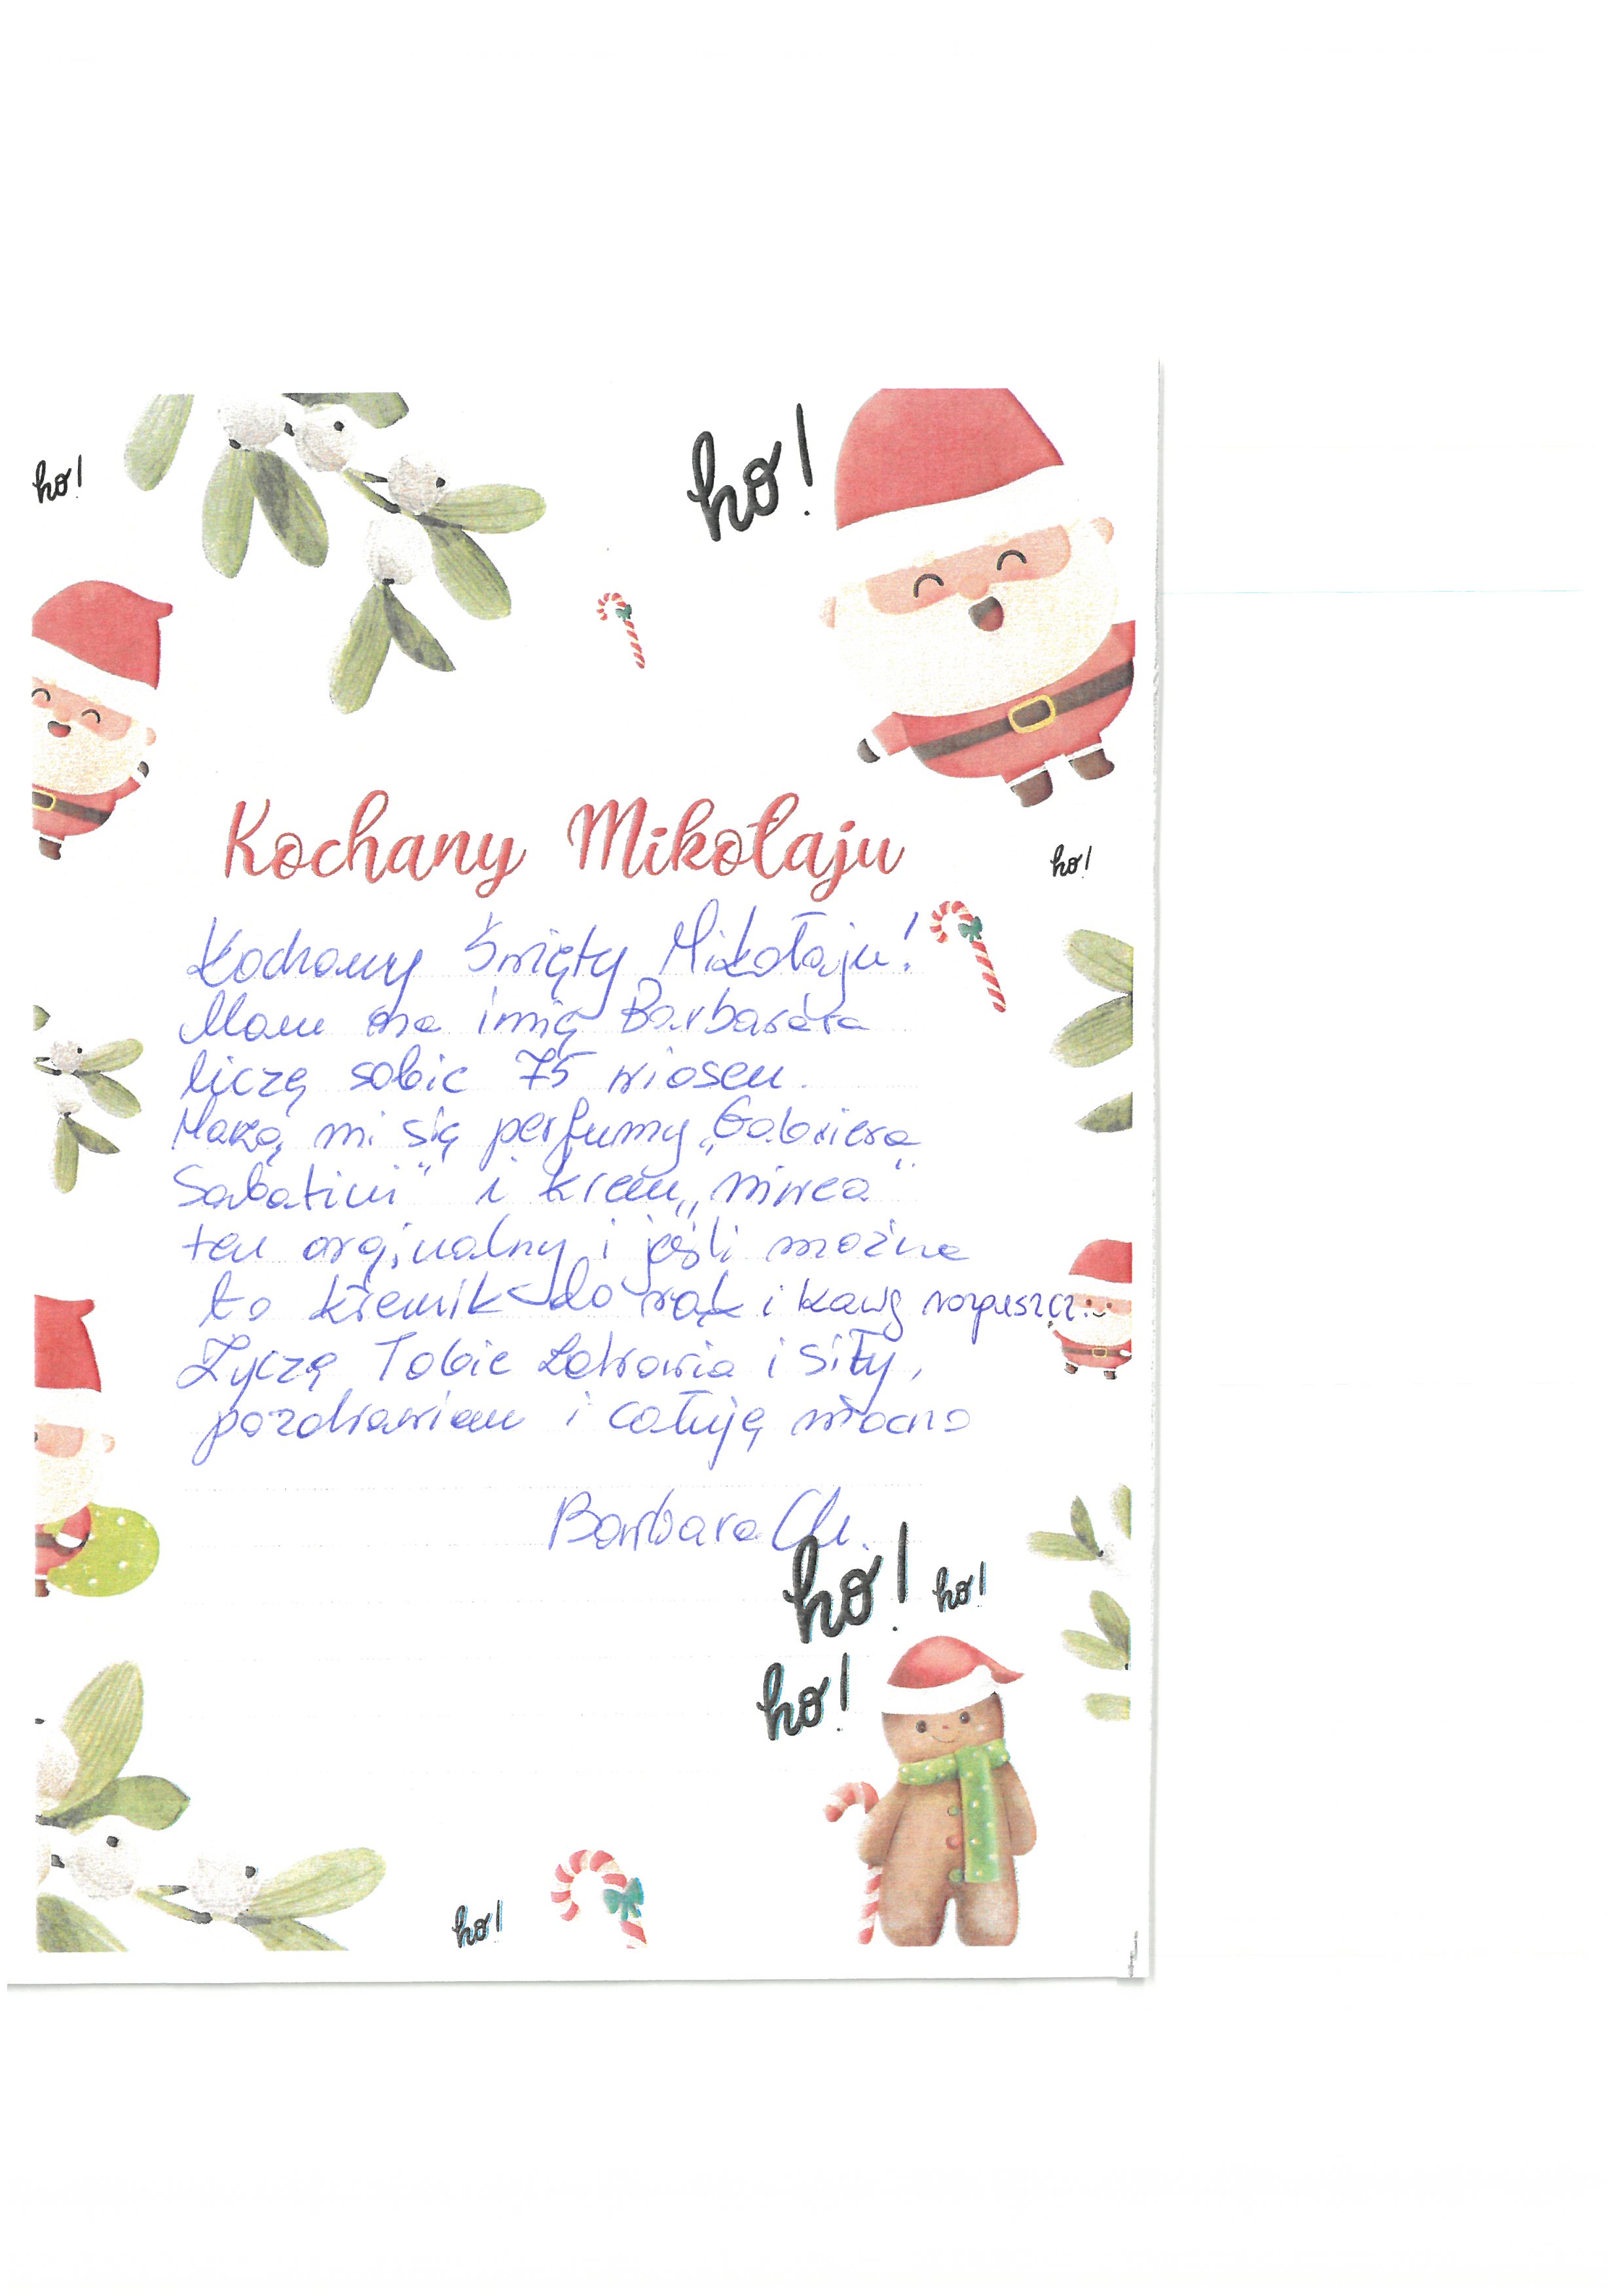 ho!
ho!
Kochany Mikołaju
ho!
Kochany Święty Mikołaju!
Mam na imię Barbara
liczę sobie 75 wiosen.
Marzą mi się perfumy „Gabriera
Sabatini" i krem „nivea"
ten orginalny i jeśli można
to kremik do rąk i kawę rozpuszcz.
Życzę Tobie Zdrowia i siły,
pozdrawiam i całuję mocno
Barbara Ch.
ho!
ho!
ho!
ho!